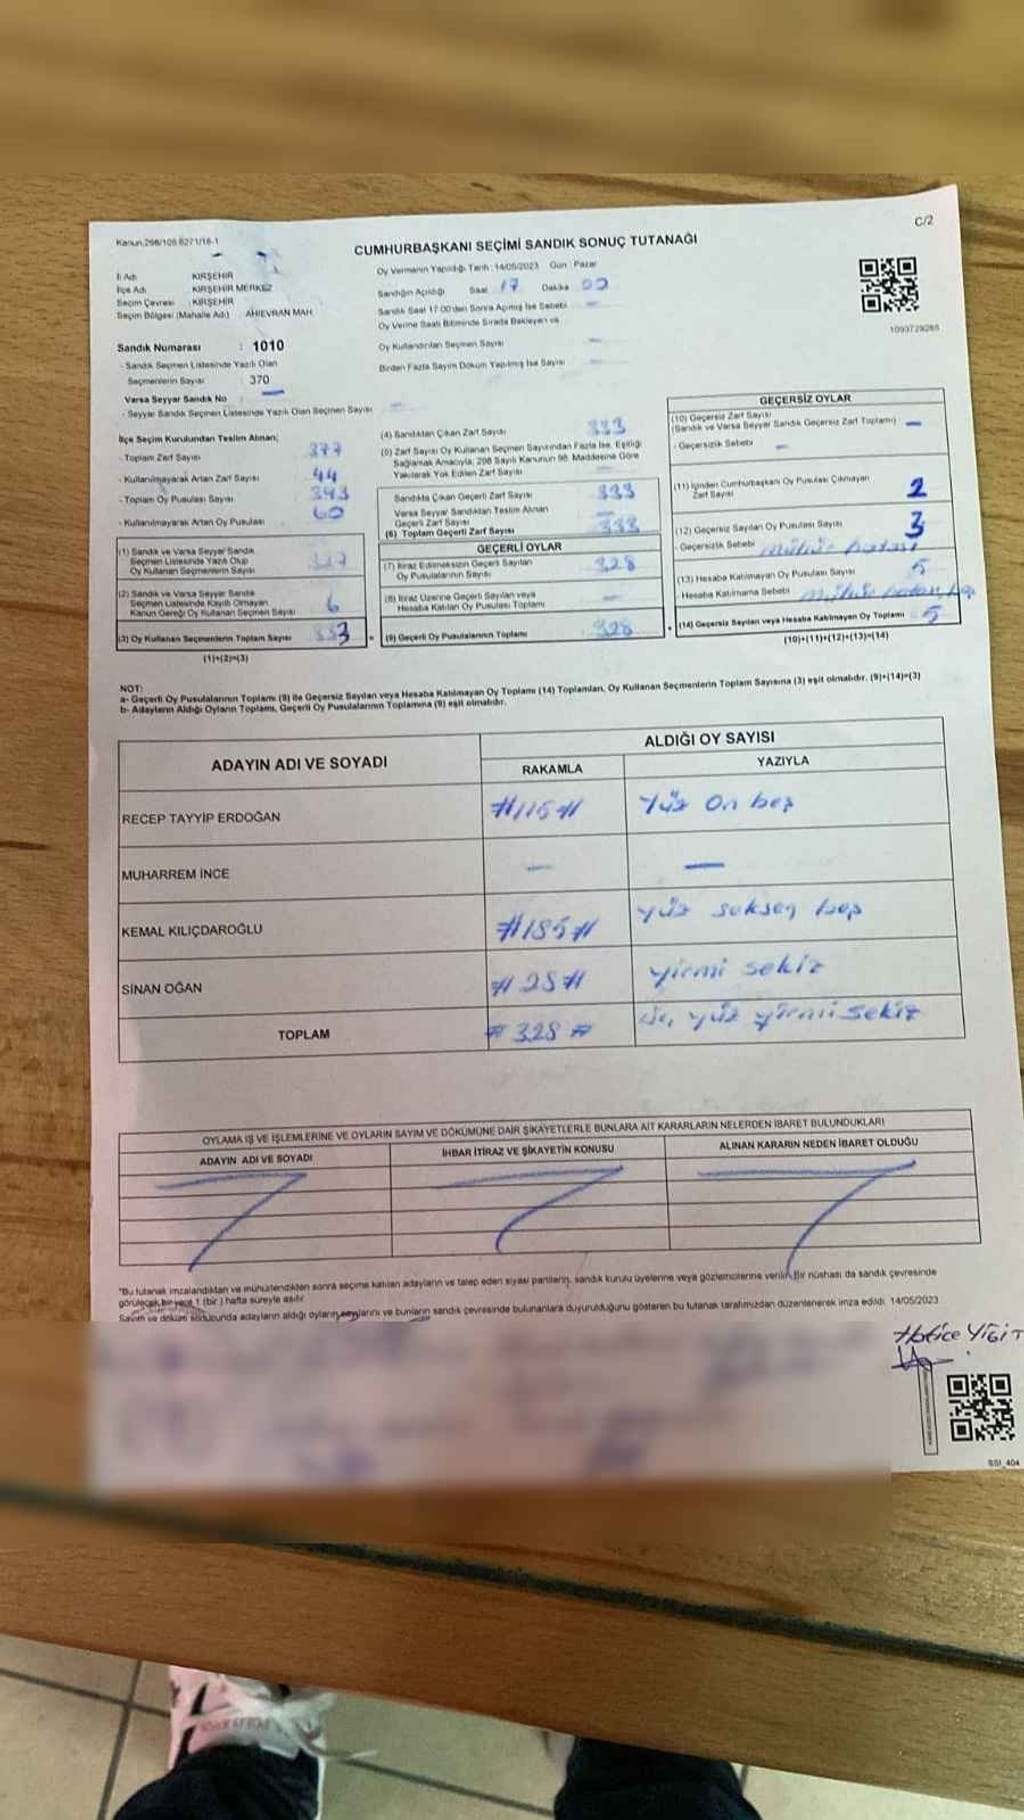 Kanun.298/105.6271/16-1
C/2
CUMHURBAŞKANI SEÇİMİ SANDIK SONUÇ TUTANAĞI
İl Adı KIRŞEHİR
İlçe Adı KIRŞEHİR MERKEZ
Seçim Çevresi : KIRŞEHİR
Seçim Bölgesi (Mahalle Adı) AHİEVRAN MAH
Sandık Numarası : 1010
- Sandık Seçmen Listesinde Yazılı Olan
Seçmenlerin Sayısı : 370
Varsa Seyyar Sandık No —
- Seyyar Sandık Seçmen Listesinde Yazılı Olan Seçmen Sayısı —
Oy Vermenin Yapıldığı Tarih :14/05/2023 Gün : Pazar
Sandığın Açıldığı Saat 17 Dakika 00
Sandık Saat 17:00'den Sonra Açılmış İse Sebebi —
Oy Verme Saati Bitiminde Sırada Bekleyen ve
Oy Kullandırılan Seçmen Sayısı —
Birden Fazla Sayım Döküm Yapılmış İse Sayısı —
1093729285
İlçe Seçim Kurulundan Teslim Alınan;
- Toplam Zarf Sayısı 377
- Kullanılmayarak Artan Zarf Sayısı 44
- Toplam Oy Pusulası Sayısı 393
- Kullanılmayarak Artan Oy Pusulası 60
(1) Sandık ve Varsa Seyyar Sandık
Seçmen Listesinde Yazılı Olup
Oy Kullanan Seçmenlerin Sayısı 327
(2) Sandık ve Varsa Seyyar Sandık
Seçmen Listesinde Kayıtlı Olmayan
Kanun Gereği Oy Kullanan Seçmen Sayısı 6
(3) Oy Kullanan Seçmenlerin Toplam Sayısı 333
(1)+(2)=(3)
(4) Sandıktan Çıkan Zarf Sayısı 333
(5) Zarf Sayısı Oy Kullanan Seçmen Sayısından Fazla İse, Eşitliği
Sağlamak Amacıyla, 298 Sayılı Kanunun 98. Maddesine Göre
Yakılarak Yok Edilen Zarf Sayısı —
Sandıkta Çıkan Geçerli Zarf Sayısı 333
Varsa Seyyar Sandıktan Teslim Alınan
Geçerli Zarf Sayısı —
(6) Toplam Geçerli Zarf Sayısı 333
GEÇERLİ OYLAR
(7) İtiraz Edilmeksizin Geçerli Sayılan
Oy Pusulalarının Sayısı 328
(8) İtiraz Üzerine Geçerli Sayılan veya
Hesaba Katılan Oy Pusulası Toplamı —
(9) Geçerli Oy Pusulalarının Toplamı 328
GEÇERSİZ OYLAR
(10) Geçersiz Zarf Sayısı
(Sandık ve Varsa Seyyar Sandık Geçersiz Zarf Toplamı) —
- Geçersizlik Sebebi —
(11) İçinden Cumhurbaşkanı Oy Pusulası Çıkmayan
Zarf Sayısı 2
(12) Geçersiz Sayılan Oy Pusulası Sayısı 3
- Geçersizlik Sebebi mühür hatası
(13) Hesaba Katılmayan Oy Pusulası Sayısı 5
- Hesaba Katılmama Sebebi mühür
(14) Geçersiz Sayılan veya Hesaba Katılmayan Oy Toplamı 5
(10)+(11)+(12)+(13)=(14)
NOT:
a- Geçerli Oy Pusulalarının Toplamı (9) ile Geçersiz Sayılan veya Hesaba Katılmayan Oy Toplamı (14) Toplamları, Oy Kullanan Seçmenlerin Toplam Sayısına (3) eşit olmalıdır. (9)+(14)=(3)
b- Adayların Aldığı Oyların Toplamı, Geçerli Oy Pusulalarının Toplamına (9) eşit olmalıdır.
ADAYIN ADI VE SOYADI
ALDIĞI OY SAYISI
RAKAMLA YAZIYLA
RECEP TAYYİP ERDOĞAN #115# Yüz on beş
MUHARREM İNCE — —
KEMAL KILIÇDAROĞLU #185# yüz seksen beş
SİNAN OĞAN #28# yirmi sekiz
TOPLAM #328# üç yüz yirmi sekiz
OYLAMA İŞ VE İŞLEMLERİNE VE OYLARIN SAYIM VE DÖKÜMÜNE DAİR ŞİKAYETLERLE BUNLARA AİT KARARLARIN NELERDEN İBARET BULUNDUKLARI
ADAYIN ADI VE SOYADI İHBAR İTİRAZ VE ŞİKAYETİN KONUSU ALINAN KARARIN NEDEN İBARET OLDUĞU
"Bu tutanak imzalandıktan ve mühürlendikten sonra seçime katılan adayların ve talep eden siyasi partilerin, sandık kurulu üyelerine veya gözlemcilerine verilir. Bir nüshası da sandık çevresinde
görülecek bir yere 1 (bir) hafta süreyle asılır.
Sayım ve döküm sonucunda adayların aldığı oyların sayılarını ve bunların sandık çevresinde bulunanlara duyurulduğunu gösteren bu tutanak tarafımızdan düzenlenerek imza edildi. 14/05/2023
Hatice YİĞİT
SSI_404